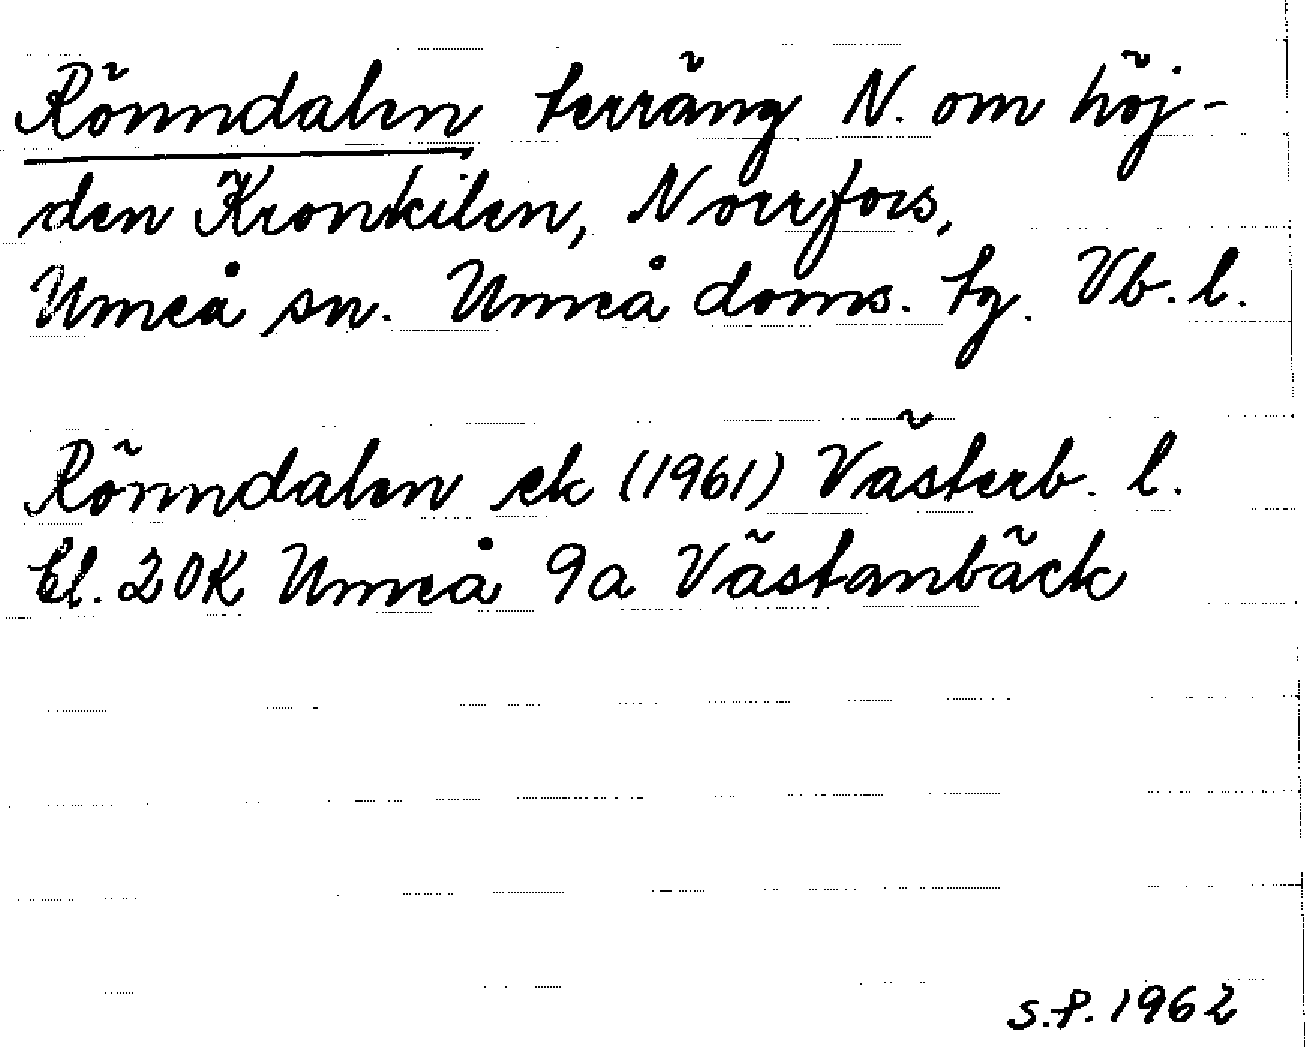 Rönndalen terräng N. om höj-
den Kronkilen, Norrfors,
Umeå sn. Umeå doms. tg. Vb. l.
Rönndalen ek (1961) Västerb. l.
Bl. 20K Umeå 9a Västanbäck
S.P. 1962